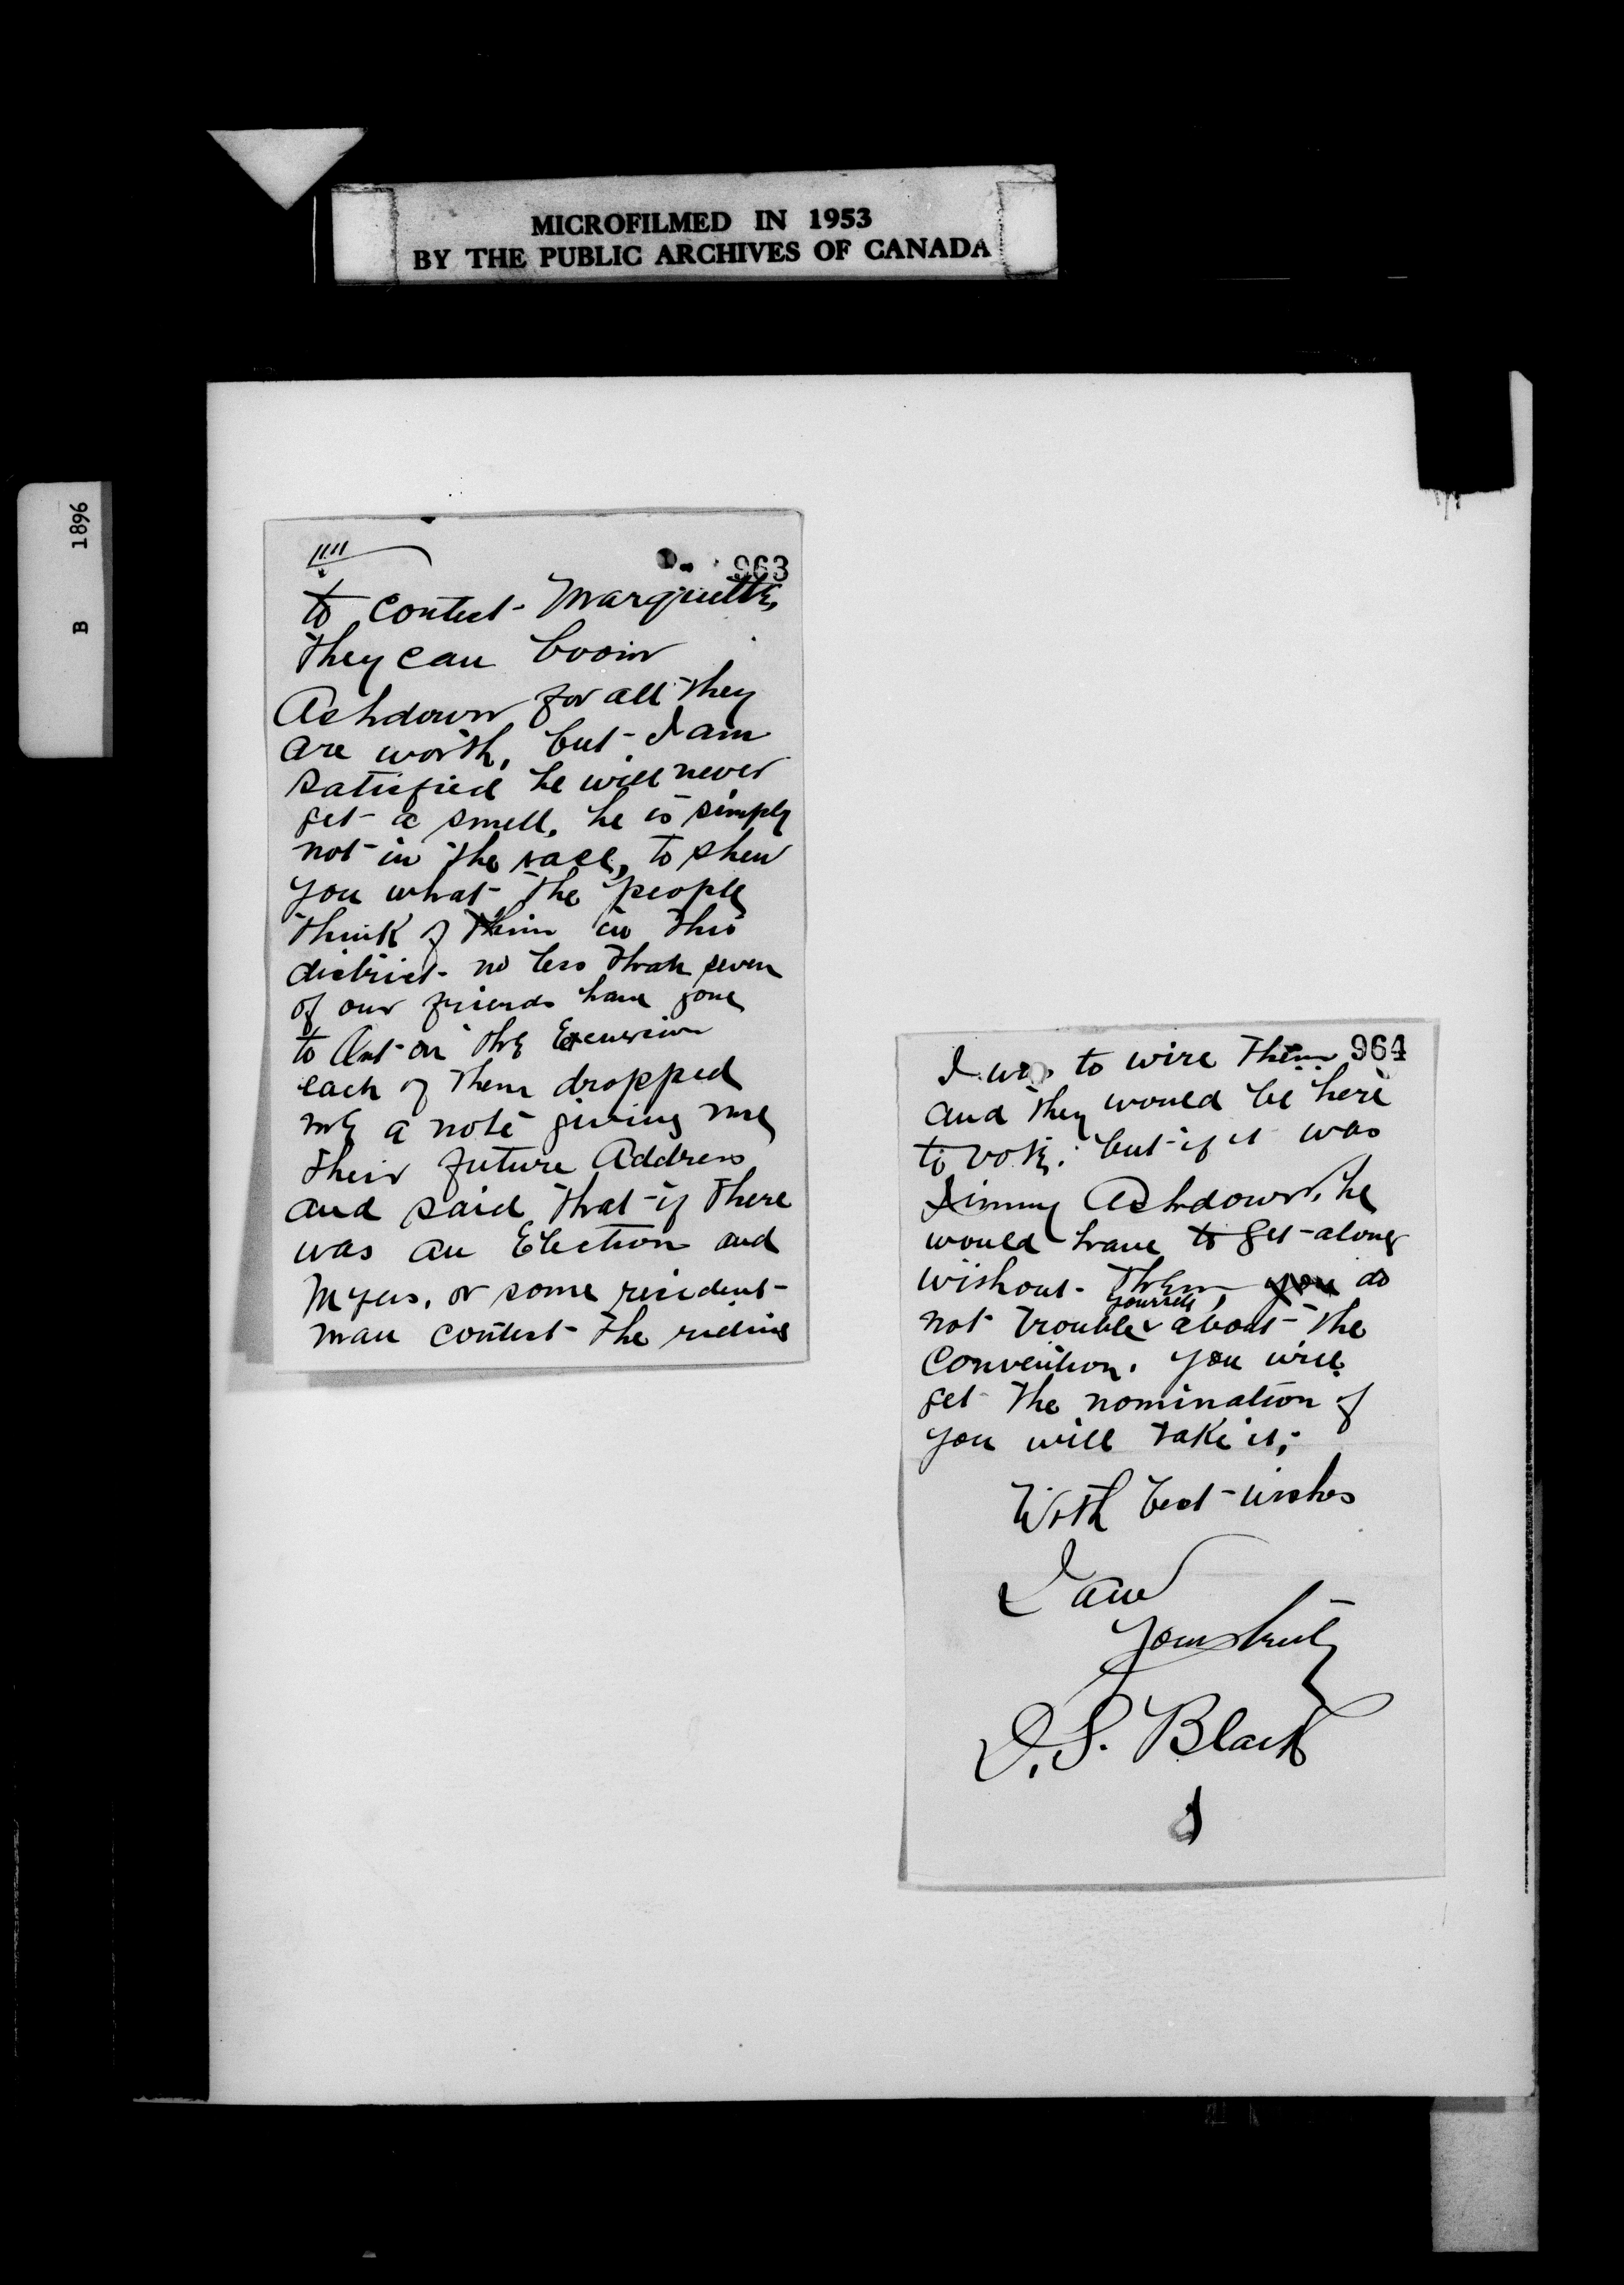 MICROFILMED IN 1953
BY THE PUBLIC ARCHIVES OF CANADA
B 1896
1111
963
to contest Marquette,
they can boom
Ashdown for all they
are worth, but I am
satisfied he will never
get a smell, he is simply
not in the race, to shew
you what the people
think of him in this
district no less than seven
of our friends have gone
to Ont on the Excursion
each of them dropped
me a note giving me
their future Address
and said that if there
was an Election and
Myers, or some resident
man contest the riding
964
I was to wire them
and they would be here
to vote, but if it was
Jimmy Ashdown, he
would have to get along
without them, you do
not trouble yourself about the
Convention. you will
get the nomination if
you will take it,
With best wishes
I am
Yours truly
D.S. Black